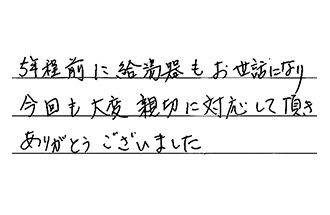 5年程前に給湯器もお世話になり
今回も大変親切に対応して頂き
ありがとうございました